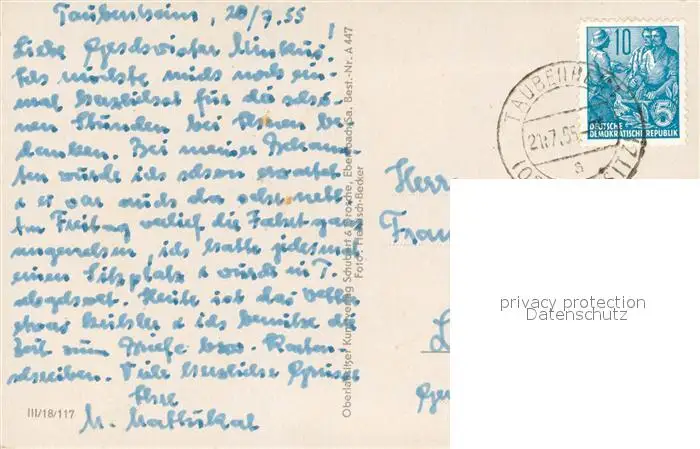 Taubenheim, 20/7.55
Liebe Geschwister Minkus!
Ich möchte mich noch ein-
mal herzlichst für die schö-
nen Stunden bei Ihnen be
danken. Bei meiner Bekann-
ten wurde ich schon erwartet
& es war auch da sehr nett
Am Freitag verlief die Fahrt ganz
angenehm, ich hatte jedesmal
einen Sitzplatz & wurde in T.
abgeholt. Heute ist das Wetter
etwas kühler & ich benütze die
Zeit zum Briefe bzw. Karten
schreiben. Viele herzliche Grüsse
Ihre
M.
III/18/117
Oberlausitzer Kunstverlag Schubert & Grosche, Ebersbach/Sa. Best.-Nr. A 447
Foto: Hanisch-Becker
10
DEUTSCHE
DEMOKRATISCHE REPUBLIK
5
TAUBENHEIM
21.7.55
a
Herr
Frau
privacy protection
Datenschutz